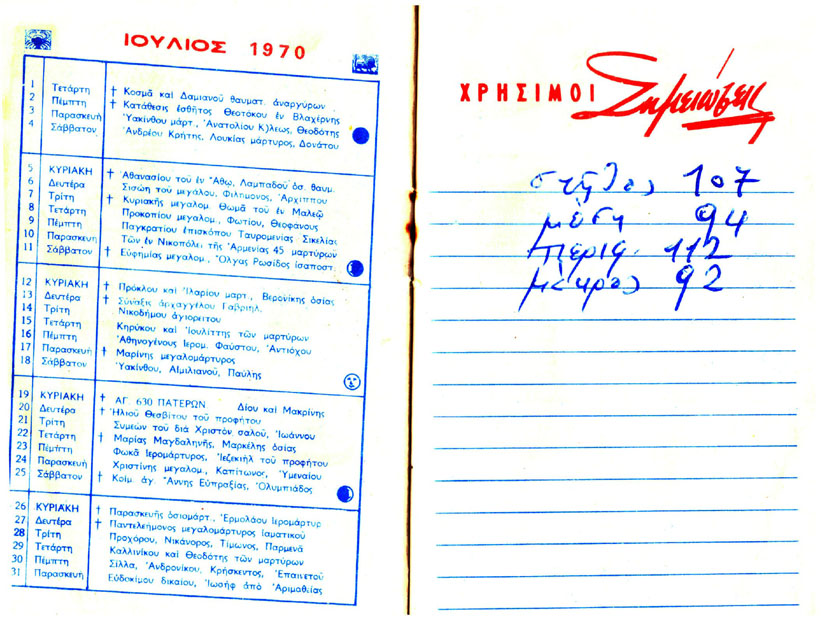 ΙΟΥΛΙΟΣ 1970
1 Τετάρτη † Κοσμᾶ καὶ Δαμιανοῦ θαυματ. ἀναργύρων
2 Πέμπτη † Κατάθεσις ἐσθῆτος Θεοτόκου ἐν Βλαχέρνης
3 Παρασκευή Ὑακίνθου μάρτ., Ἀνατολίου Κ)λεως, Θεοδότης
4 Σάββατον Ἀνδρέου Κρήτης, Λουκίας μάρτυρος, Δονάτου
5 ΚΥΡΙΑΚΗ † Ἀθανασίου τοῦ ἐν Ἄθω, Λαμπαδοῦ ὁσ. θαυμ.
6 Δευτέρα Σισώη τοῦ μεγάλου, Φιλήμονος, Ἀρχίππου
7 Τρίτη † Κυριακῆς μεγαλομ. Θωμᾶ τοῦ ἐν Μαλεῷ
8 Τετάρτη Προκοπίου μεγαλομ., Φωτίου, Θεοφάνους
9 Πέμπτη Παγκρατίου ἐπισκόπου Ταυρομενίας Σικελίας
10 Παρασκευή Τῶν ἐν Νικοπόλει τῆς Ἀρμενίας 45 μαρτύρων
11 Σάββατον † Εὐφημίας μεγαλομ., Ὄλγας Ρωσίδος ἰσαποστ.
12 ΚΥΡΙΑΚΗ † Πρόκλου καὶ Ἱλαρίου μαρτ., Βερονίκης ὁσίας
13 Δευτέρα † Σύναξις ἀρχαγγέλου Γαβριήλ.
14 Τρίτη Νικοδήμου ἁγιορείτου
15 Τετάρτη Κηρύκου καὶ Ἰουλίττης τῶν μαρτύρων
16 Πέμπτη Ἀθηνογένους Ἱερομ. Φαύστου, Ἀντιόχου
17 Παρασκευή † Μαρίνης μεγαλομάρτυρος
18 Σάββατον Ὑακίνθου, Αἰμιλιανοῦ, Παύλης
19 ΚΥΡΙΑΚΗ † ΑΓ. 630 ΠΑΤΕΡΩΝ Δίου καὶ Μακρίνης
20 Δευτέρα † Ἠλιοῦ Θεσβίτου τοῦ προφήτου
21 Τρίτη Συμεών τοῦ διὰ Χριστὸν σαλοῦ, Ἰωάννου
22 Τετάρτη † Μαρίας Μαγδαληνῆς, Μαρκέλης ὁσίας
23 Πέμπτη Φωκᾶ Ἱερομάρτυρος, Ἰεζεκιὴλ τοῦ προφήτου
24 Παρασκευή Χριστίνης μεγαλομ., Καπίτωνος, Ὑμεναίου
25 Σάββατον † Κοίμ. ἁγ. Ἄννης Εὐπραξίας, Ὀλυμπιάδος
26 ΚΥΡΙΑΚΗ † Παρασκευῆς ὁσιομάρτ., Ἑρμολάου Ἱερομάρτυρ
27 Δευτέρα † Παντελεήμονος μεγαλομάρτυρος ἰαματικοῦ
28 Τρίτη Προχόρου, Νικάνορος, Τίμωνος, Παρμενᾶ
29 Τετάρτη Καλλινίκου καὶ Θεοδότης τῶν μαρτύρων
30 Πέμπτη Σίλλα, Ἀνδρονίκου, Κρήσκεντος, Ἐπαινετοῦ
31 Παρασκευή Εὐδοκίμου δικαίου, Ἰωσὴφ ἀπὸ Ἀριμαθείας
ΧΡΗΣΙΜΟΙ Σημειώσεις
στῆθος 107
μέση 94
περιφ. 112
μάκρος 92